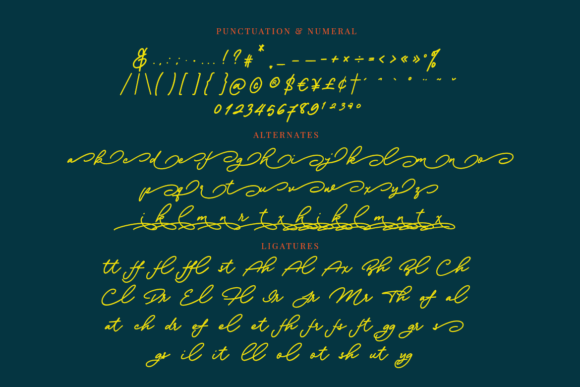 PUNCTUATION & NUMERAL
& . , : ; · - . . . ! ? # *
. _ – — – + × ÷ = < > « » ° %
/ | \ ( ) [ ] { } @ © ® $ € ¥ £ ¢ †
0 1 2 3 4 5 6 7 8 9 1 2 3 0
ALTERNATES
a b c d e f g h i j k l m n o
p q r t u v w x y z
i k l m n r t x h i k l m n t x
LIGATURES
tt ff fl ffl st Ah Al Ax Bh Bl Ch
Cl Dr El Fl Ir Jr Mr Th af al
at ch dr ef el et fh fr fs ft gg gr s
gs il it ll ol ot sh ut yg